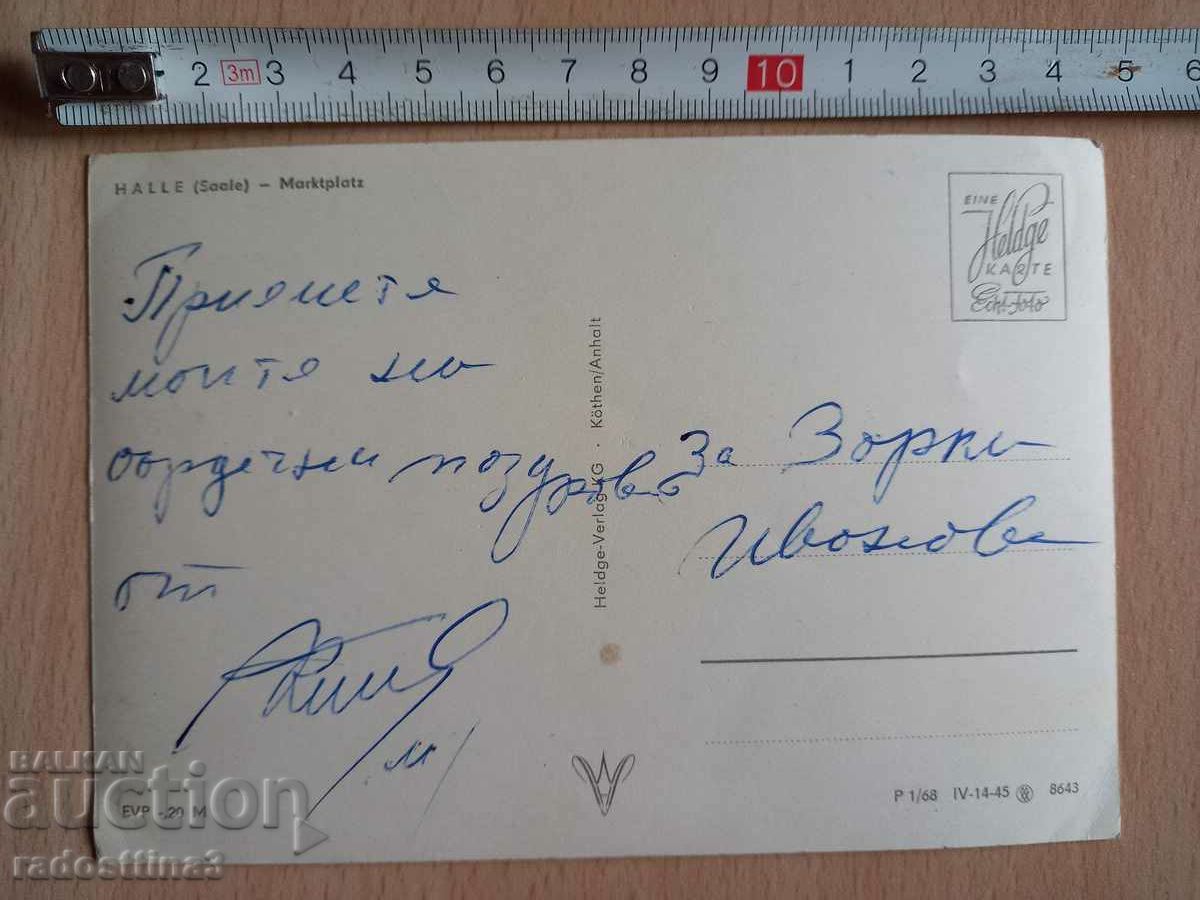 2 3m 3 4 5 6 7 8 9 10 1 2 3 4 5 6
HALLE (Saale) – Marktplatz
EINE
Heldge
KARTE
Echt Foto
Приеметя
моитя
сърдечни поздрав
от
За Зорка
Иванова
Heldge-Verlag KG · Köthen/Anhalt
EVP -,20 M
P 1/68 IV-14-45 8643
BALKAN
auction
radosttina3